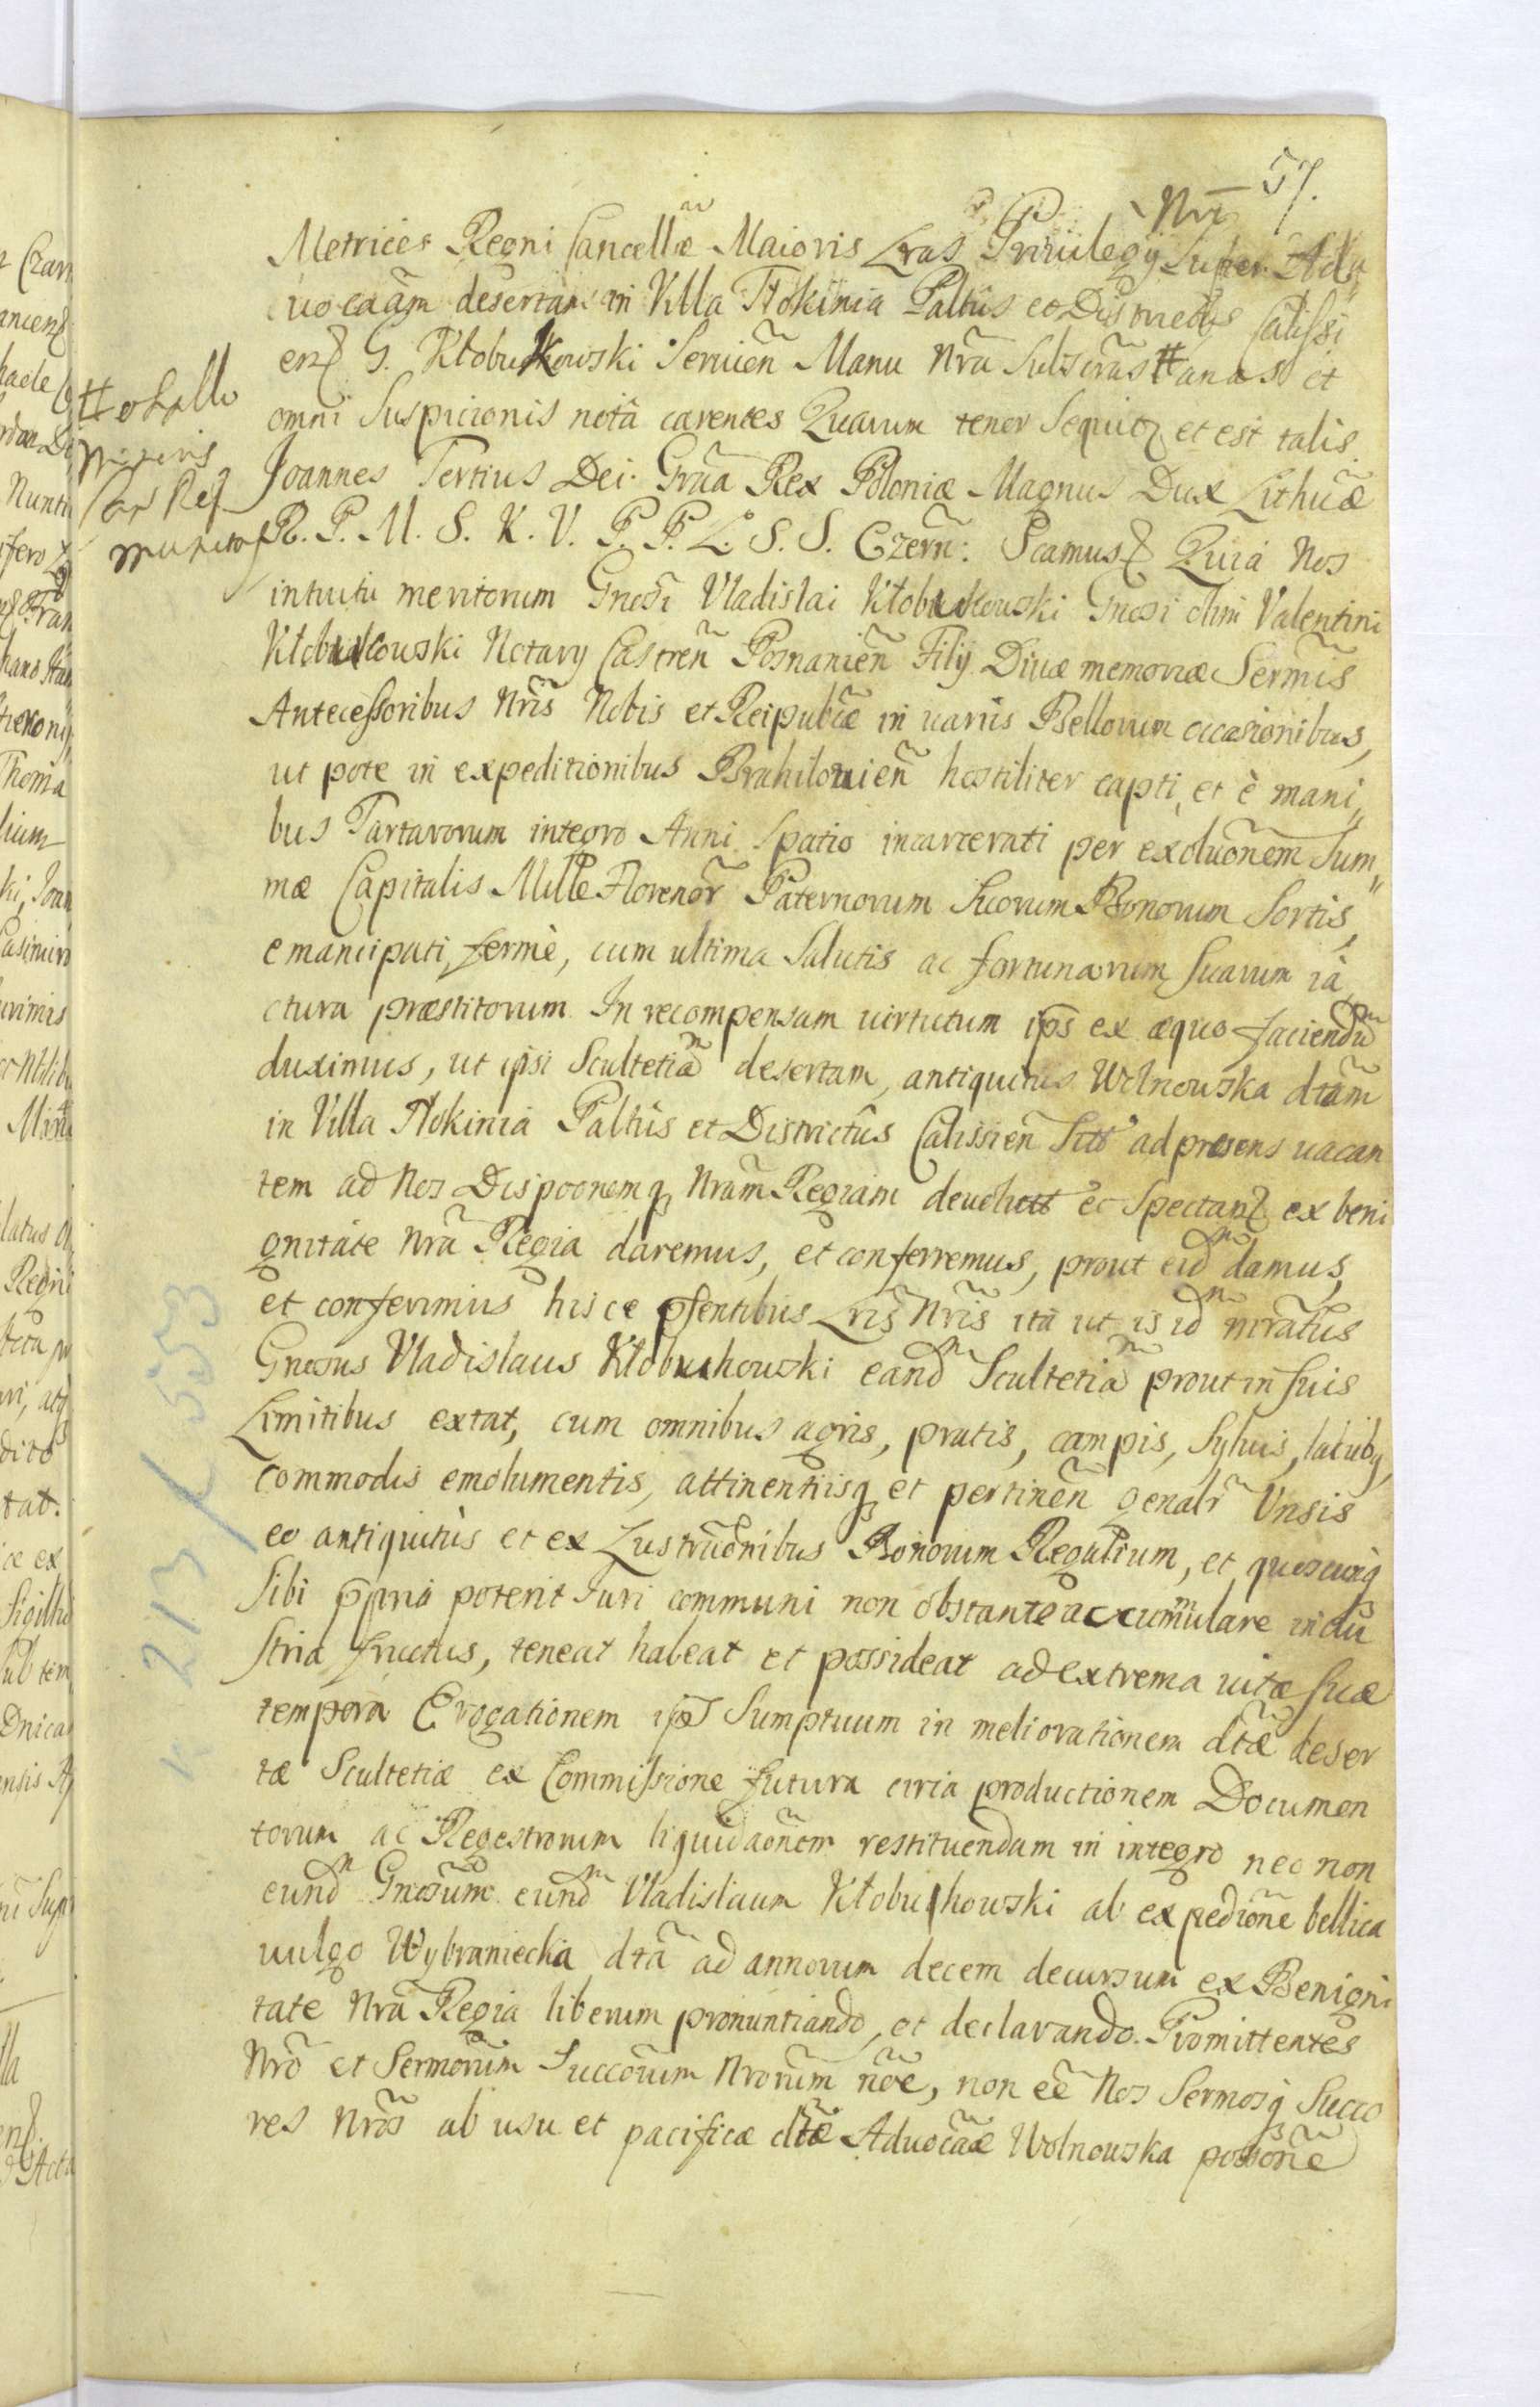 57.
Nri
Metrices Regni Cancellæ̃ Maioris Lras Priuilegÿ super Ad
uocãam desertam in Villa Tłokinia Paltûs et Districtus Calissi
en̄ G. Kłobukowski Seruien̄ Manu Nrã Subscrãs # anas et
omni Suspicionis notâ carentes Quarum tenor Sequitʒ et est talis.
# et Sigillo
Maioris
Can Reg
munitas
Joannes Tertius Dei Grãa Rex Poloniæ Magnus Dux Lithuæ̃
R. P. M. S. K. V. P. P. L. S. S. Czern̄: Scamusʒ Quia Nos
intuitu meritorum Gnosi Vladislai Kłobukowski Gnosi olim Valentini
Kłobukowski Notarÿ Castren̄ Posnanien̄ Filÿ Diuæ memoriæ Sermĩs
Antecessoribus Nrĩs Nobis et Reipubcæ in uariis Bellorum occasionibus,
ut pote in expeditionibus Brahilouien̄ hostiliter capti, et è mani„
bus Tartarorum integro Anni Spatio incarcerati per exoluõnem Sum„
mæ Capitalis Mille Florenor̃ Paternorum Suorum Bonorum Sortis,
emancipati, fermè, cum ultima Salutis ac fortunarum Suarum ia
ctura præstitorum. In recompensam uirtutum ips̃ ex æquo faciendũ
duximus, ut ipsi Scultetiã desertam, antiquitus Wolnowska dtãm
in Villa Tłokinia Paltûs et Districtûs Calissien̄ Sitt ad presens uacan
tem ad Nos Dispoõnemqʒ Nrãm Regiam deuolutt et Spectanʒ ex beni
gnitate Nrã Regia daremus, et conferremus, prout eidm damus,
et conferimus hisce p̃sentibus Lrĩs Nrĩs ita ut is idm mratũs
Gnosus Vladislaus Kłobukowski eandm Scultetiã prout in suis
Limitibus extat, cum omnibus agris, pratis, campis, Syluis, lacubqʒ
commodis emolumentis, attinentiisqʒ et pertinen̄ genalr̃ Vnsis
eo antiquitùs et ex Lustraõnibus Bonorum Regalium, et quoscunqʒ
Sibi p̃pria poterit Juri communi non obstante accumulare indu
stria fructus, teneat habeat et possideat ad extrema uitæ suæ
tempora Erogationem ips̃ Sumptuum in meliorationem dtæ̃ deser
tæ Scultetiæ ex Commissione futura circa productionem Documen
torum ac Regestrorum liquidaõnem restituendam in integro nec non
eundm Gnosum eundm Vladislaum Kłobukowski ab expediõne bellica
uulgo Wybraniecka dtã ad annorum decem decursum ex Benigni
tate Nrã Regia liberum pronuntiando, et declarando. Promittentes
Nrõ et Sermorũm Succorũm Nrorũm nõe, non eẽ Nos Sermosqʒ Succo
res Nrõs ab usu et pacifica dtæ̃ Aduocãæ Wolnowska possoñe
K 213 / 553